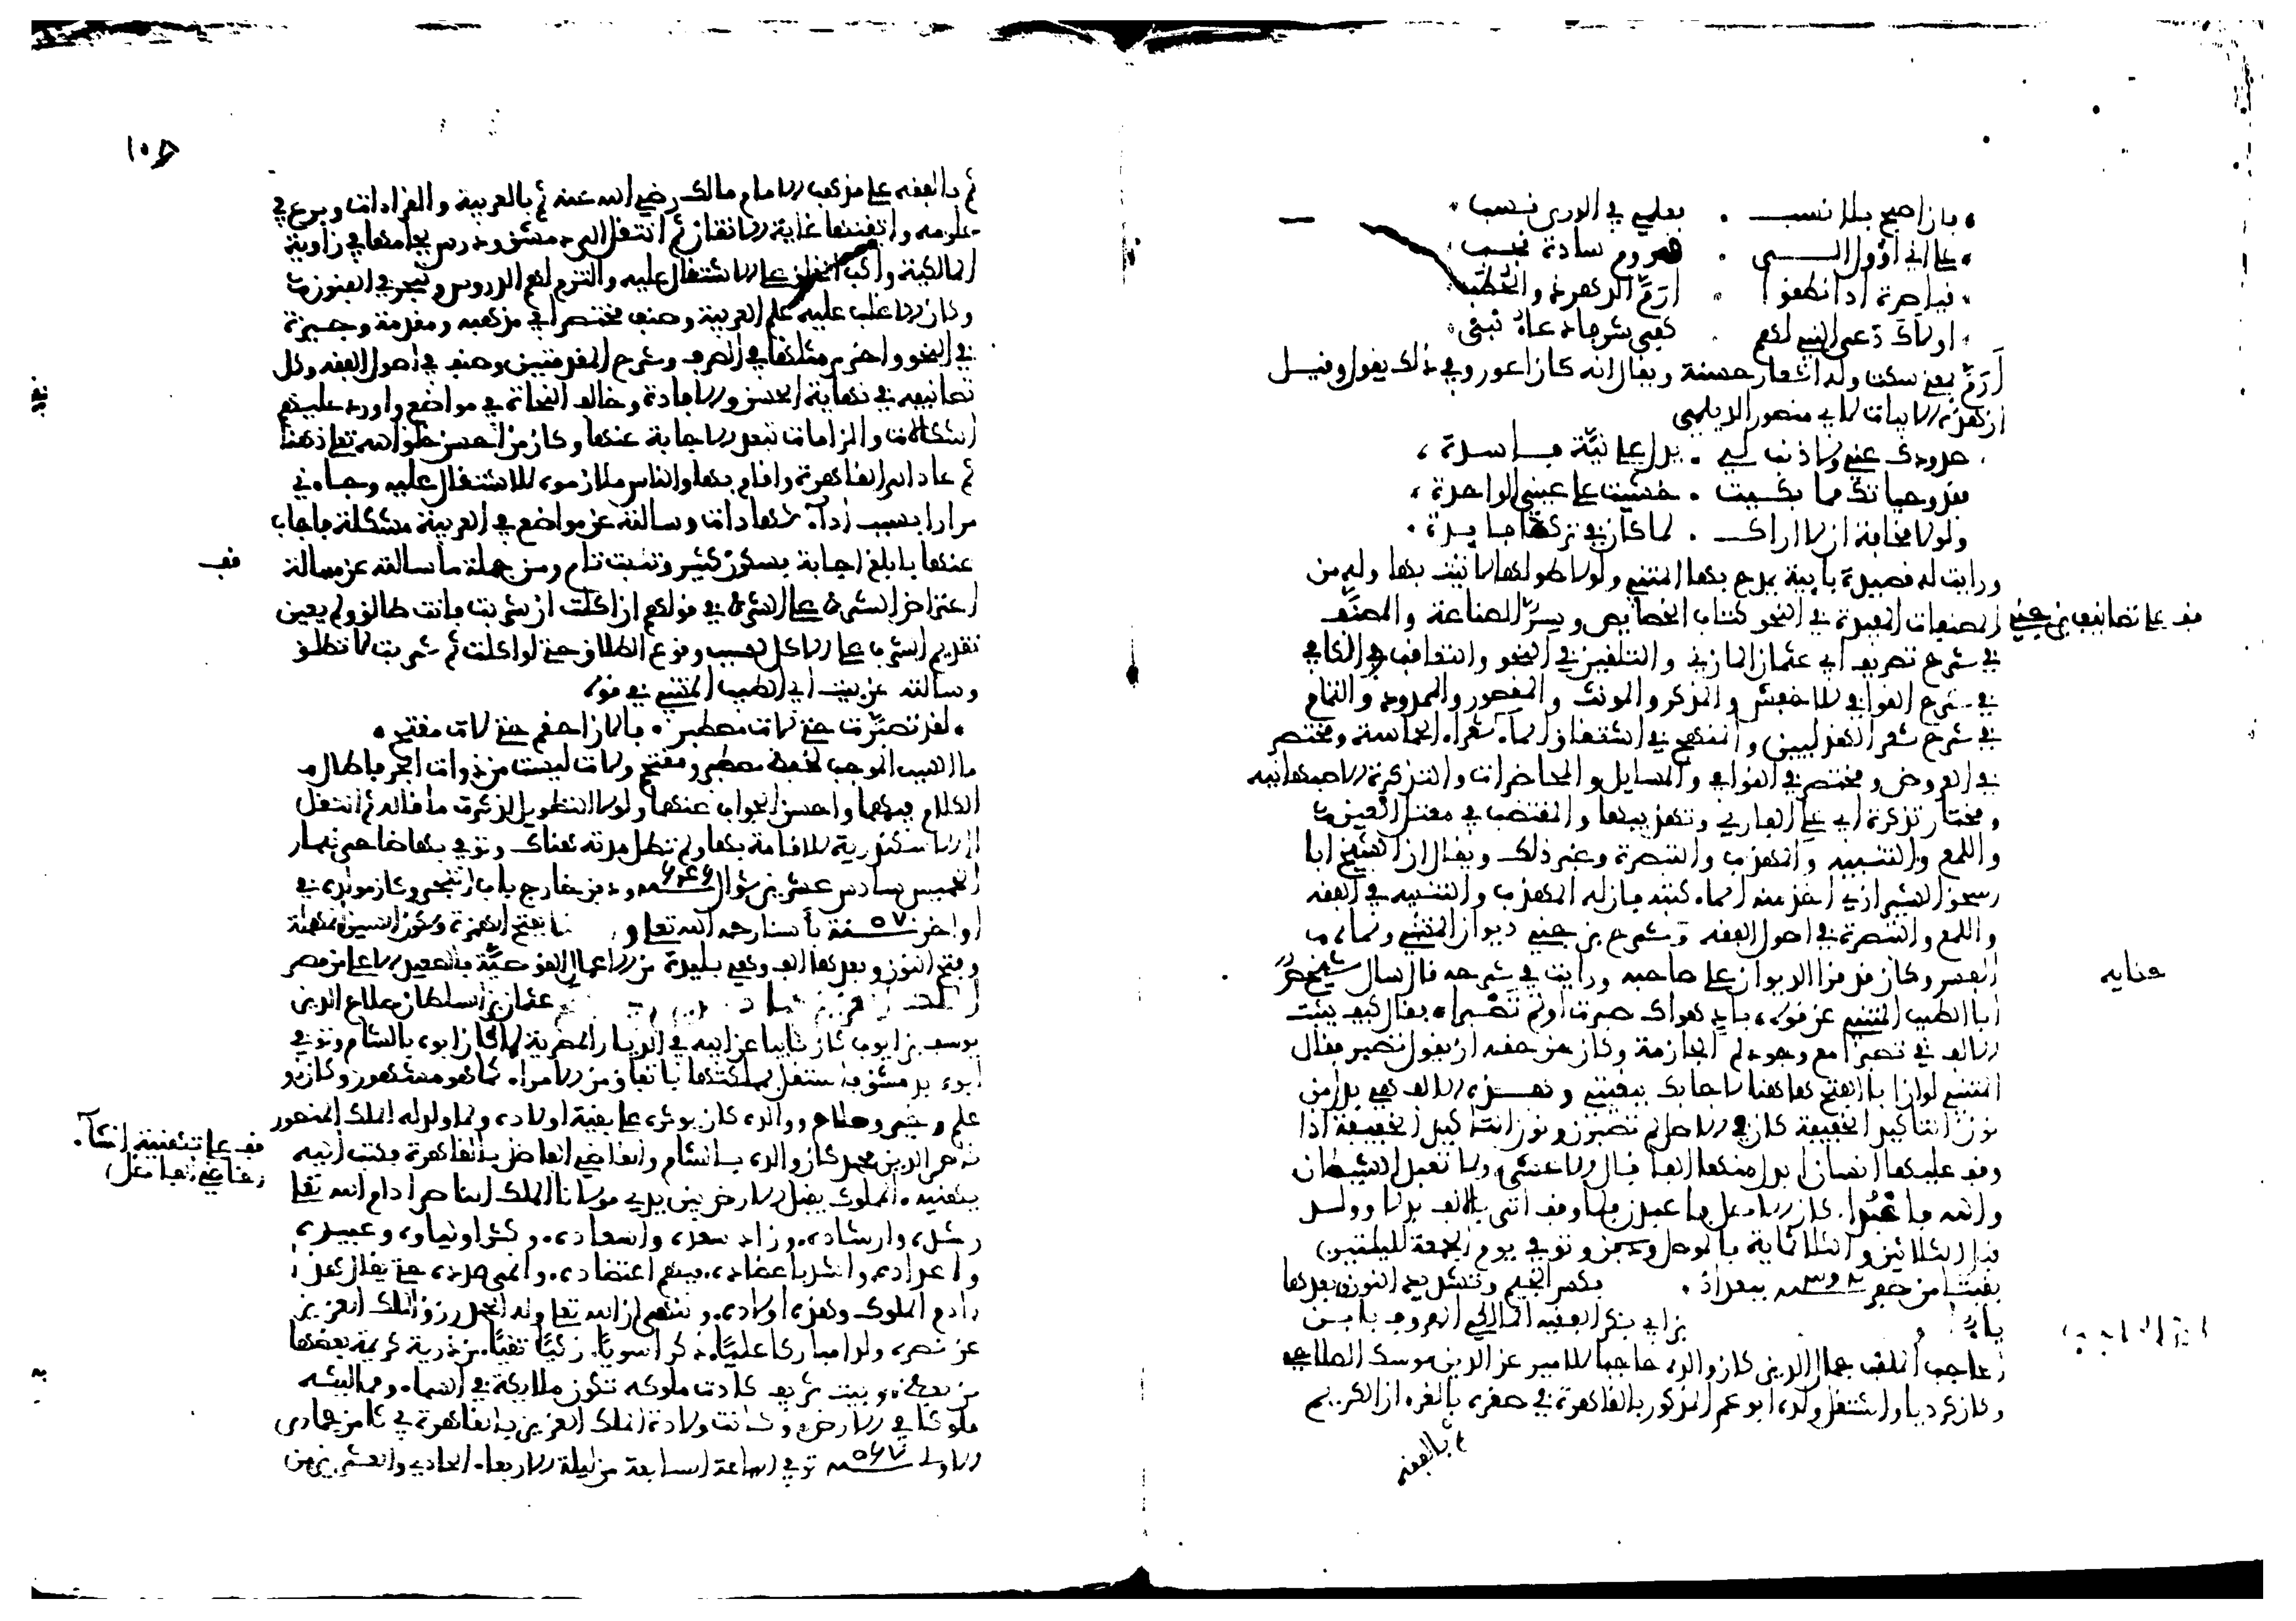 فإن أصبح بلا نسب . فعلمي في الورى نسب
على أني أؤول إلى . قروم سادة نجب
قياصرة إذا نطقوا . أرمّ الدهر ذو الخطب
أولاك دعى النبي لهم . كفى شرفا دعاء نبي
أرَمّ يعني سكت وله أشعار حسنة ويقال إنه كان أعور وفي ذلك يقول وقيل
إن هذه الأبيات لأبي منصور الديلمي
صدودك عني ولا ذنب لي . يدل على نيّة فاسدة
فقد وحياتك مما بكيت . خشيت على عيني الواحدة
ولولا مخافة أن لا أراك . لما كان في تركها فايدة
ورأيت له قصيدة بابية يمدح بها المتنبي ولولا طولها لأتيت بها وله من
المصنفات المفيدة في النحو كتاب الخصايص وسرّ الصناعة والمصنّف
قف على تصانيف بن جني
في شرح تصريف أبي عثمان المازني والتلقين في النحو والتعاقب والكافي
في شرح القوافي للأخفش والمذكر والمونث والمقصور والممدود والتمام
في شرح شعر الهذليين والمنهج في اشتقاق أسماء شعراء الحماسة ومختصر
في العروض ومختصر في القوافي والمسايل والمحاضرات والتذكرة الأصبهانية
ومختار تذكرة أبي علي الفارسي وتهذيبها والمقتضب في معتل العين
واللمع والتنبيه والمهذب والتبصرة وغير ذلك ويقال إن الشيخ أبا
إسحق الشيرازي أخذ منه أسماء كتبه فإن له المهذب والتنبيه في الفقه
واللمع والتبصرة في أصول الفقه وشرح بن جني ديوان المتنبي وسماه
الفسر وكان قد قرأ الديوان على صاحبه ورأيت في شرحه قال سأل شخص
أبا الطيب المتنبي عن قوله باد هواك صبرت أو لم تصبرا فقال كيف يثبت
الألف في تصبرا مع وجود لم الجازمة وكان من حقه أن يقول تصبر فقال
المتنبي لو أن أبا الفتح هاهنا لأجابك يعنيني وهذه الألف هي بدل من
نون التأكيد الخفيفة كان في الأصل لم تصبرن ونون التأكيد الخفيفة إذا
وقف عليها إنسان أبدل منها ألفا قال الأعشى ولا تعبد الشيطان
والله فاعبدا كان الأصل فاعبدن فلما وقف أتى بالألف بدلا وولد
قبل الثلاثين والثلاثماية بالموصل وتوفي يوم الجمعة لليلتين
بقيتا من صفر ٣٩٢ ببغداد . بكسر الجيم وتشديد النون وبعدها
ياء
بن أبي بكر الفقيه المالكي المعروف بابن
الحاجب الملقب جمال الدين كان والده حاجبا للأمير عز الدين موسك الصلاحي
وكان كرديا واشتغل ولده أبو عمر المذكور بالقاهرة في صغره بالقرءان الكريم
ثم بالفقه
ثم بالفقه على مذهب الإمام مالك رضي الله عنه ثم بالعربية والقراءات وبرع في
علومه وأتقنها غاية الإتقان ثم انتقل إلى دمشق ودرس بجامعها في زاوية
المالكية وأكب الخلق على الاشتغال عليه والتزم لهم الدروس وتبحر في الفنون
وكان الأغلب عليه علم العربية وصنف مختصرا في مذهبه ومقدمة وجيزة
في النحو وأخرى مثلها في الصرف وشرح المقدمتين وصنف في أصول الفقه وكل
تصانيفه في نهاية الحسن والإفادة وخالف النحاة في مواضع وأورد عليهم
إشكالات وإلزامات تبعد الإجابة عنها وكان من أحسن خلق الله تعلى ذهنا
ثم عاد إلى القاهرة وأقام بها والناس ملازمون للاشتغال عليه وجاءني
مرارا بسبب أداء شهادات وسألته عن مواضع في العربية مشكلة فأجاب
عنها بأبلغ إجابة بسكون كثير وتثبت تام ومن جملة ما سألته عن مسألة
قف
اعتراض الشرط على الشرط في قولهم إن أكلت إن شربت فأنت طالق ولم يتعين
تقديم الشرب على الأكل بسبب وقوع الطلاق حتى لو أكلت ثم شربت لا تطلق
وسألته عن بيت أبي الطيب المتنبي في قوله
لقد تصبّرت حتى لات مصطبر . فالان أقحم حتى لات مقتحم
ما السبب الموجب لخفض مصطبر ومقتحم ولات ليست من ذوات الجر فأطال
الكلام فيهما وأحسن الجواب عنهما ولولا التطويل لذكرت ما قاله ثم انتقل
إلى الاسكندرية للإقامة بها ولم تطل مدته هناك وتوفي بها ضاحي نهار
الخميس سادس عشرين شوال ٦٤٦ ودفن خارج باب البحر وكان مولده في
أواخر ٥٧٠ سنة بأسنا رحمه الله تعلى و نا بفتح الهمزة وسكون السين المهملة
وفتح النون وبعدها ألف وهي بليدة من الأعمال القوصيّة بالصعيد الأعلى من مصر
عثمان بن السلطان صلاح الدين
يوسف بن أيوب كان نايبا عن أبيه في الديار المصرية لما كان أبوه بالشام وتوفي
أبوه بدمشق فاستقل بمملكتها باتفاق من الأمراء كما هو مشهور وكان ذو
علم وخير وصلاح ووالده كان يوثره على بقية أولاده ولما ولد له الملك المنصور
ناصر الدين محمد كان والده بالشام والقاضي الفاضل بالقاهرة فكتب إليه
قف على تهنئة إنشاء
القاضي الفاضل
يهنيه المملوك يقبل الأرض بين يدي مولانا الملك الناصر أدام الله تعلى
رشده وإرشاده وزاد سعده وإسعاده وكثر أولياءه وعبيده
وأعداده واشتد بأعضاده فيهم اعتضاده وأنمى عدده حتى يقال هذا
آدم الملوك وهذه أولاده وينهي أن الله تعلى وله الحمد رزق الملك العزيز
عز نصره ولدا مباركا عليّا ذكرا سويّا زكيّا تقيّا من ذرية كريمة بعضها
من بعض وبيت شريف كادت ملوكه تكون ملايكة في السماء ومماليكه
ملوكا في الأرض وكانت ولادة الملك العزيز بالقاهرة في ثامن جمادى
الأولى ٥٦٧ توفي الساعة السابعة من ليلة الأربعاء الحادي والعشرين من